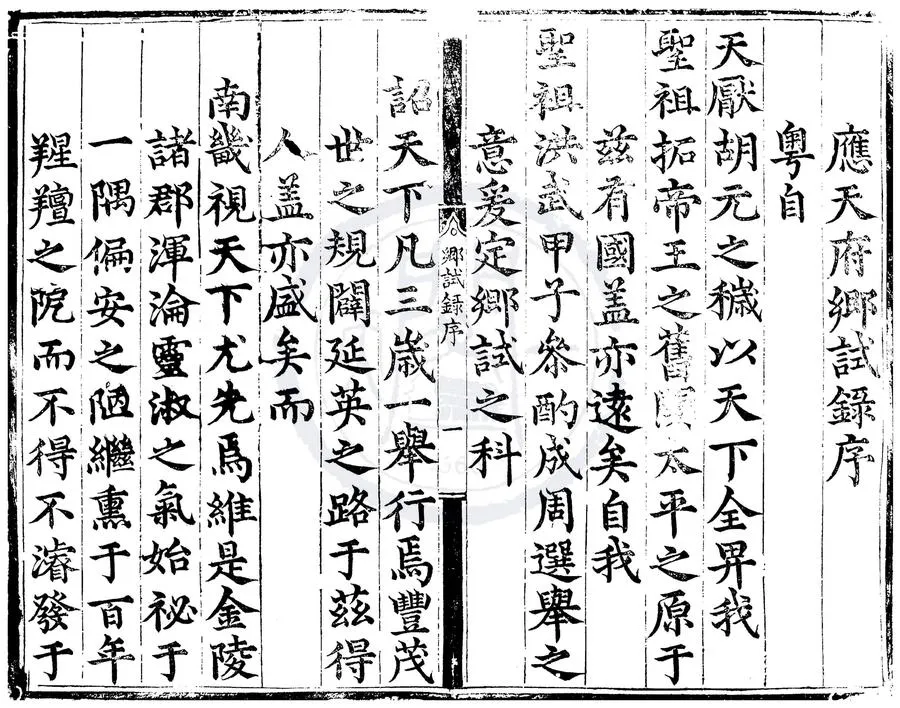 應天府鄉試錄序
粵自
天厭胡元之穢以天下全畀我
聖祖拓帝王之舊闡太平之原于
茲有國盖亦遠矣自我
聖祖洪武甲子叅酌成周選舉之
意爰定鄉試之科
鄉試錄序 一
詔天下凡三歲一舉行焉豐茂
世之規闢延英之路于茲得
人盖亦盛矣而
南畿視天下尤先焉維是金陵
諸郡渾淪靈淑之氣始祕于
一隅偏安之陋繼熏于百年
羶之阸而不得不濬發于